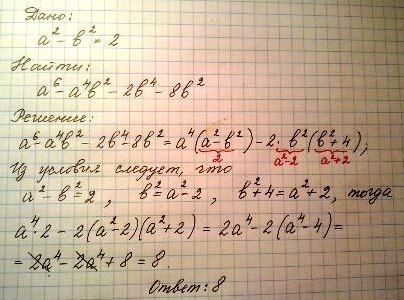 Дано:
a² - b² = 2
Найти:
a⁶ - a⁴b² - 2b⁴ - 8b²
Решение:
a⁶ - a⁴b² - 2b⁴ - 8b² = a⁴(a² - b²) - 2·b²(b² + 4),
2 a²-2 a²+2
Из условия следует, что
a² - b² = 2, b² = a² - 2, b² + 4 = a² + 2, тогда
a⁴·2 - 2(a² - 2)(a² + 2) = 2a⁴ - 2(a⁴ - 4) =
= 2a⁴ - 2a⁴ + 8 = 8.
Ответ: 8